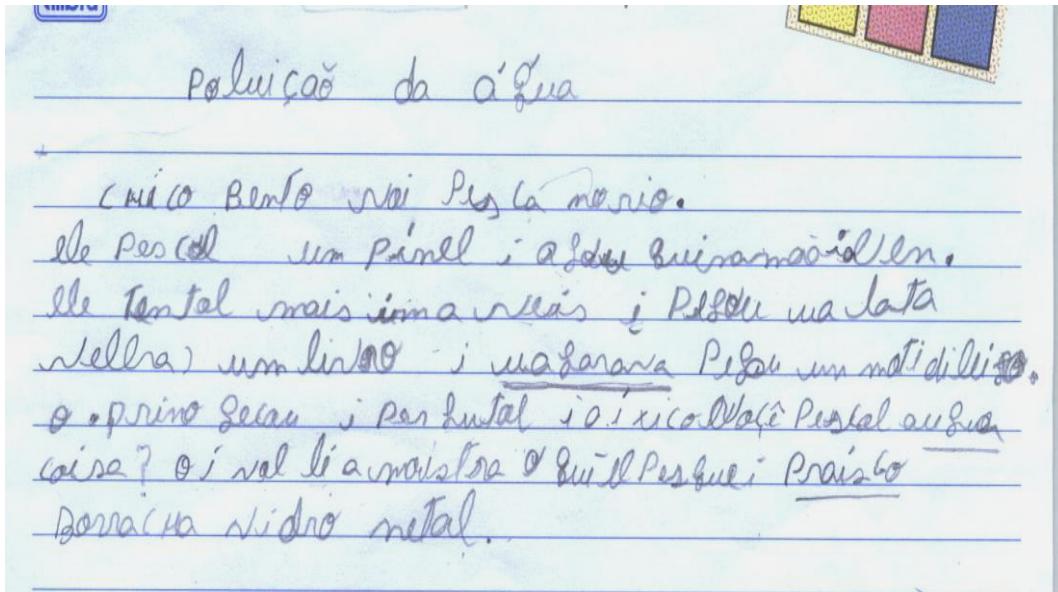 Poluição da água
CHICO Bento vai Pescá norio.
ele Pescol um Pinel i
ele Tental mais uma veás i Pegou ua lata
vellha) um livro i uagarava Pegou um moti dilixo.
o . primo gecau i Per gutal i oi xico Você Pescal auguа
coisa? oi val lê a mostra o qui el Pesquei Praisto
Borracha vidro metal.